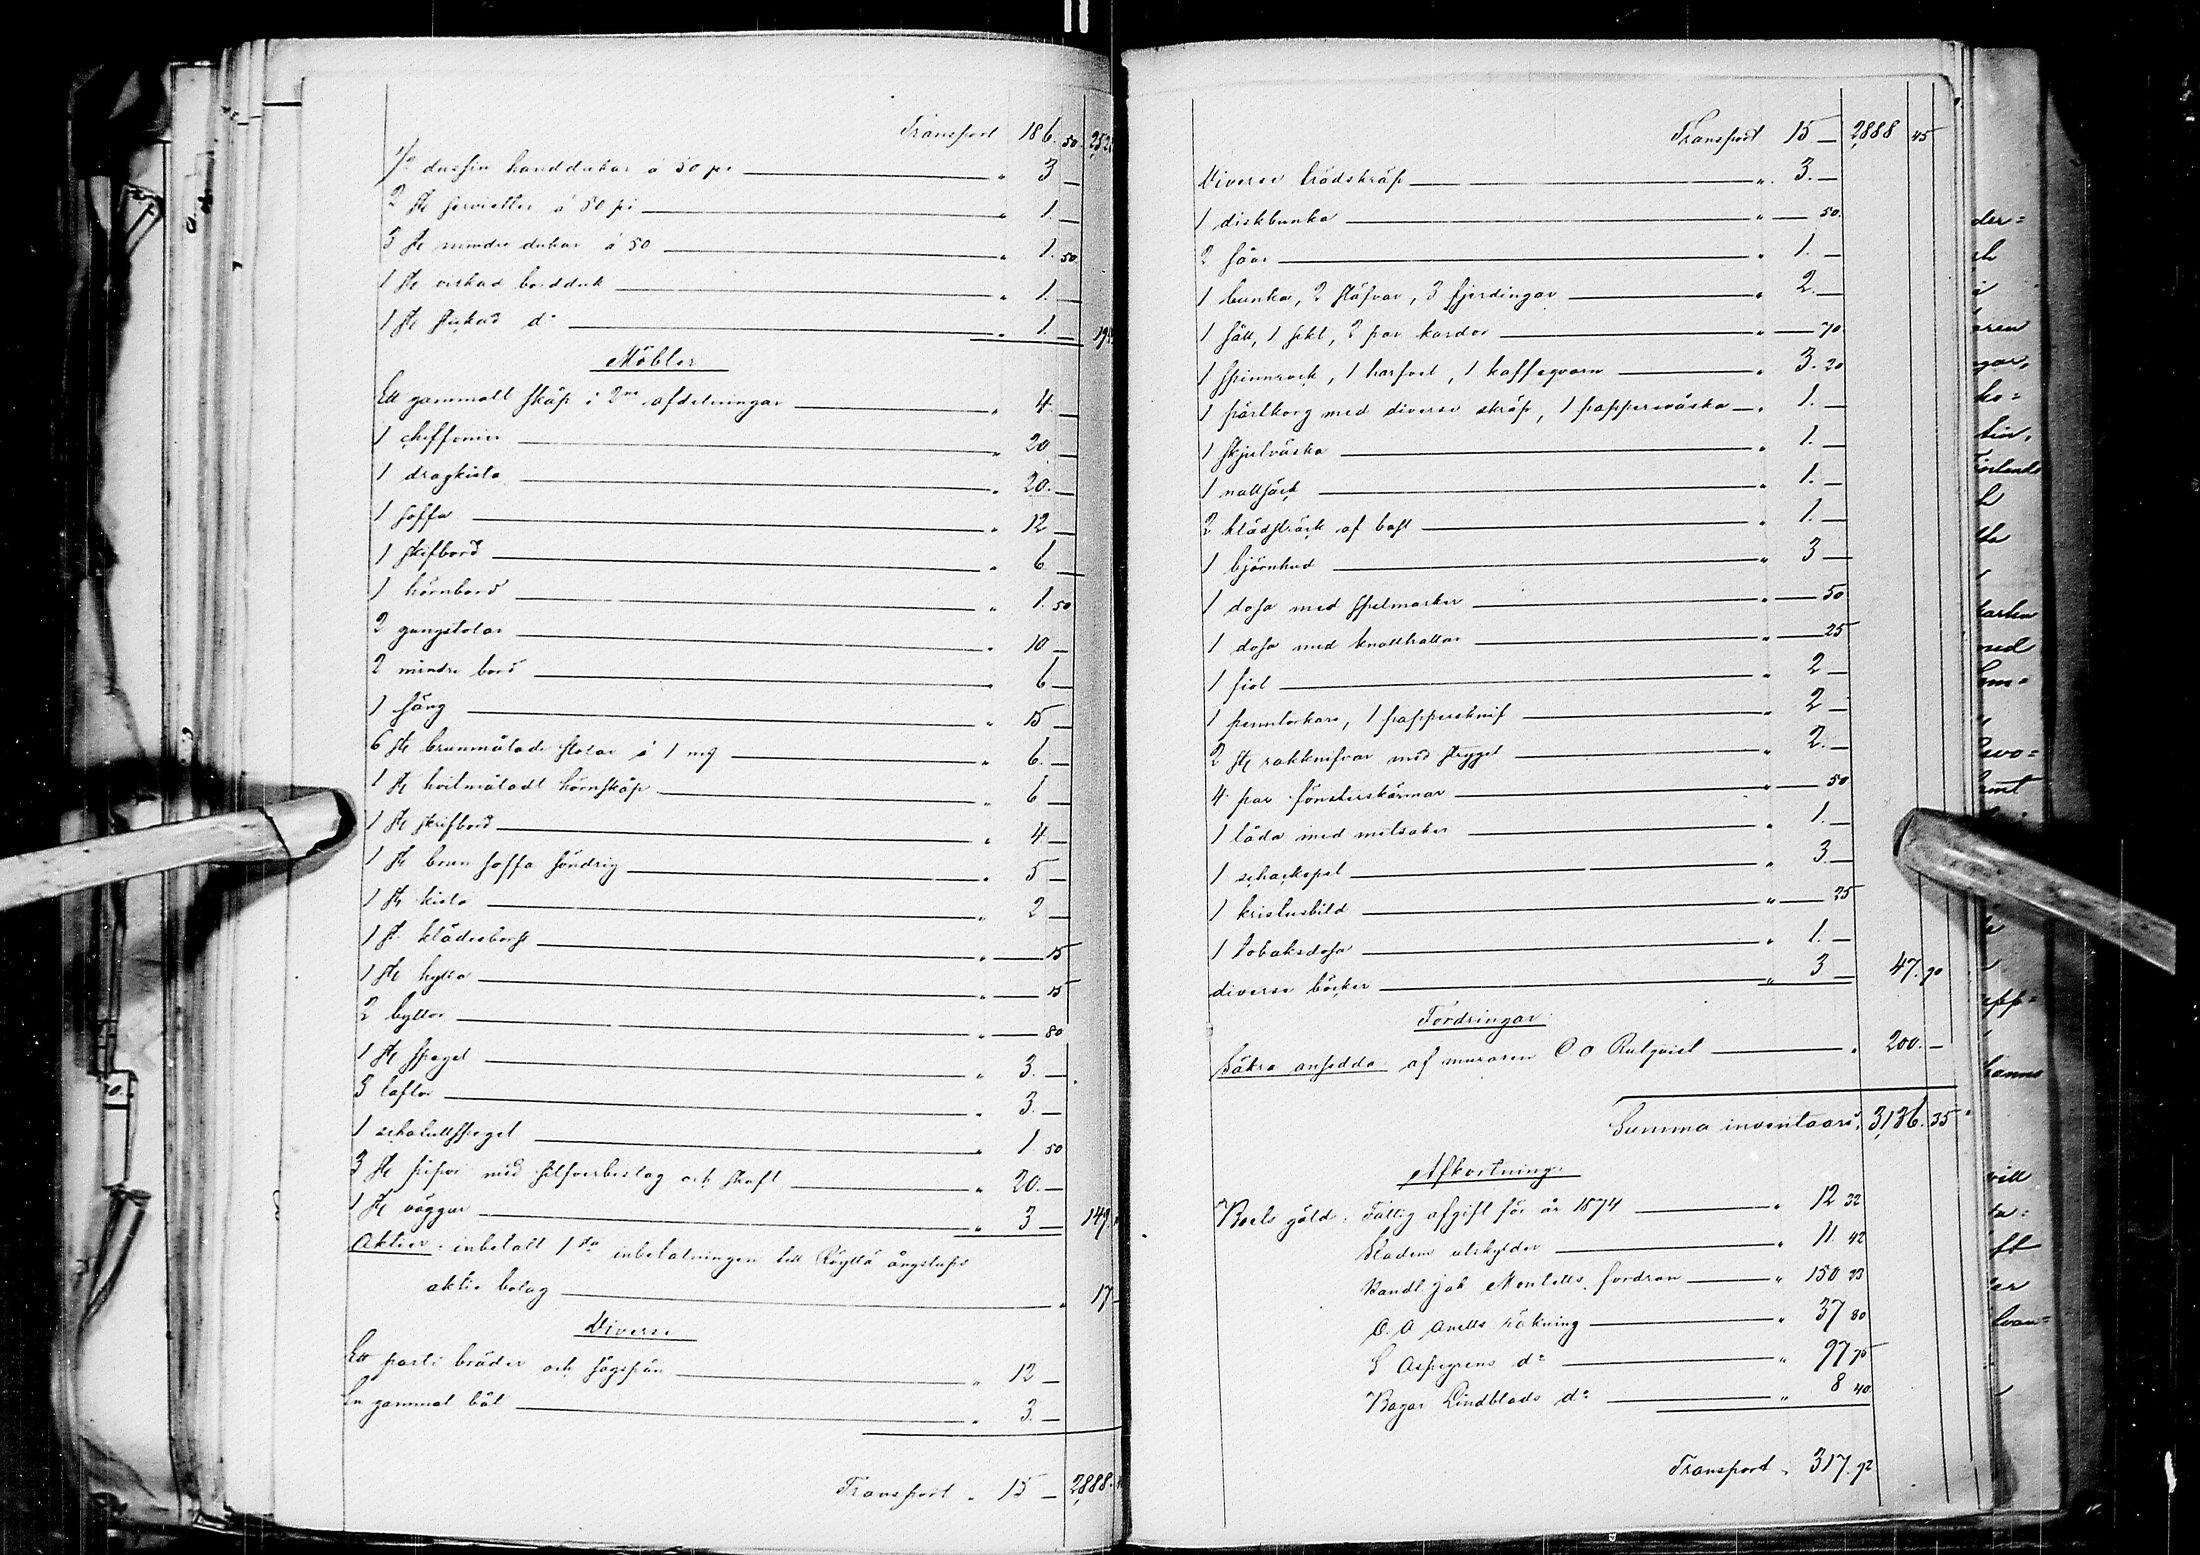 Transport 186. 50. 252
1/2 dussin handdukar á 50 pi " 3 —
2 st servietter á 50 pi " 1. —
3 st mindre dukar á 50 " 1. 50
1 st virkad bordduk " 1. —
1 st stickad do " 1. — 19
Möbler
Ett gammalt skåp i 2ne afdelningar " 4. —
1 cheffonier " 20 —
1 dragkista " 20. —
1 soffa " 12 —
1 skifbord " 6 —
1 hörnbord " 1. 50
2 gungstolar " 10 —
2 mindre bord " 6 —
1 säng " 15 —
6 st brunmålade stolar á 1 mg " 6. —
1 st hvitmåladt hörnskåp " 6 —
1 st skrifbord " 4 —
1 st brun soffa söndrig " 5 —
1 st kista " 2 —
1 st klädesborst " — 15
1 st hylla " — 15
2 byttor " — 80
1 st spegel " 3. —
3 taflor " 3. —
1 schatullspegel " 1 50
3 st pipor med silfverbeslag och skaft " 20. —
1 st väggur " 3 — 149.
Aktier: inbetalt 1sta inbetalningen till Röyttä ångslups
aktie bolag " 17
Diverse
Ett parti bräder och sågspån " 12 —
En gammal båt " 3. —
Transport " 15 — 2,888.
Transport 15 — 2,888 45
Diverse trädskräp " 3. —
1 diskbunka " — 50.
2 såar " 1. —
1 bunka, 2 stäfvor, 3 fjerdingar " 2. —
1 såll, 1 sikt, 2 par kardor " — 70
1 spinnrock, 1 harfvel, 1 kaffeqvarn " 3. 20
1 pärtkorg med diverse skräp, 1 pappersväska " 1. —
1 skjutväska " 1. —
1 nattsäck " 1. —
2 klädsträck af bast " 1. —
1 björnhud " 3 —
1 dosa med spelmarker " — 50
1 dosa med knallhattar " — 25
1 fiol " 2 —
1 penntorkare, 1 pappersknif " 2 —
2 st rakknifvar med stryggel " 2. —
4 par fönsterskärmar " — 50
1 låda med metsaker " 1. —
1 schackspel " 3. —
1 kristusbild " — 25
1 tobaksdosa " 1. —
diverse böcker " 3 — 47. 90
Fordringar:
Säkra ansedda af muraren C O Rutqvist " 200. —
Summa inventaarii, 3,136. 35
Afkortning:
Boets gäld: Fattig afgift för år 1874 " 12 32
Stadens utskylder " 11. 42
Handl. Jak Montells fordran " 150 23
O. A Anells räkning " 37 80
S Aspegrens do " 97 75
Bagar Lindblads do " 8 40
Transport " 317. 92